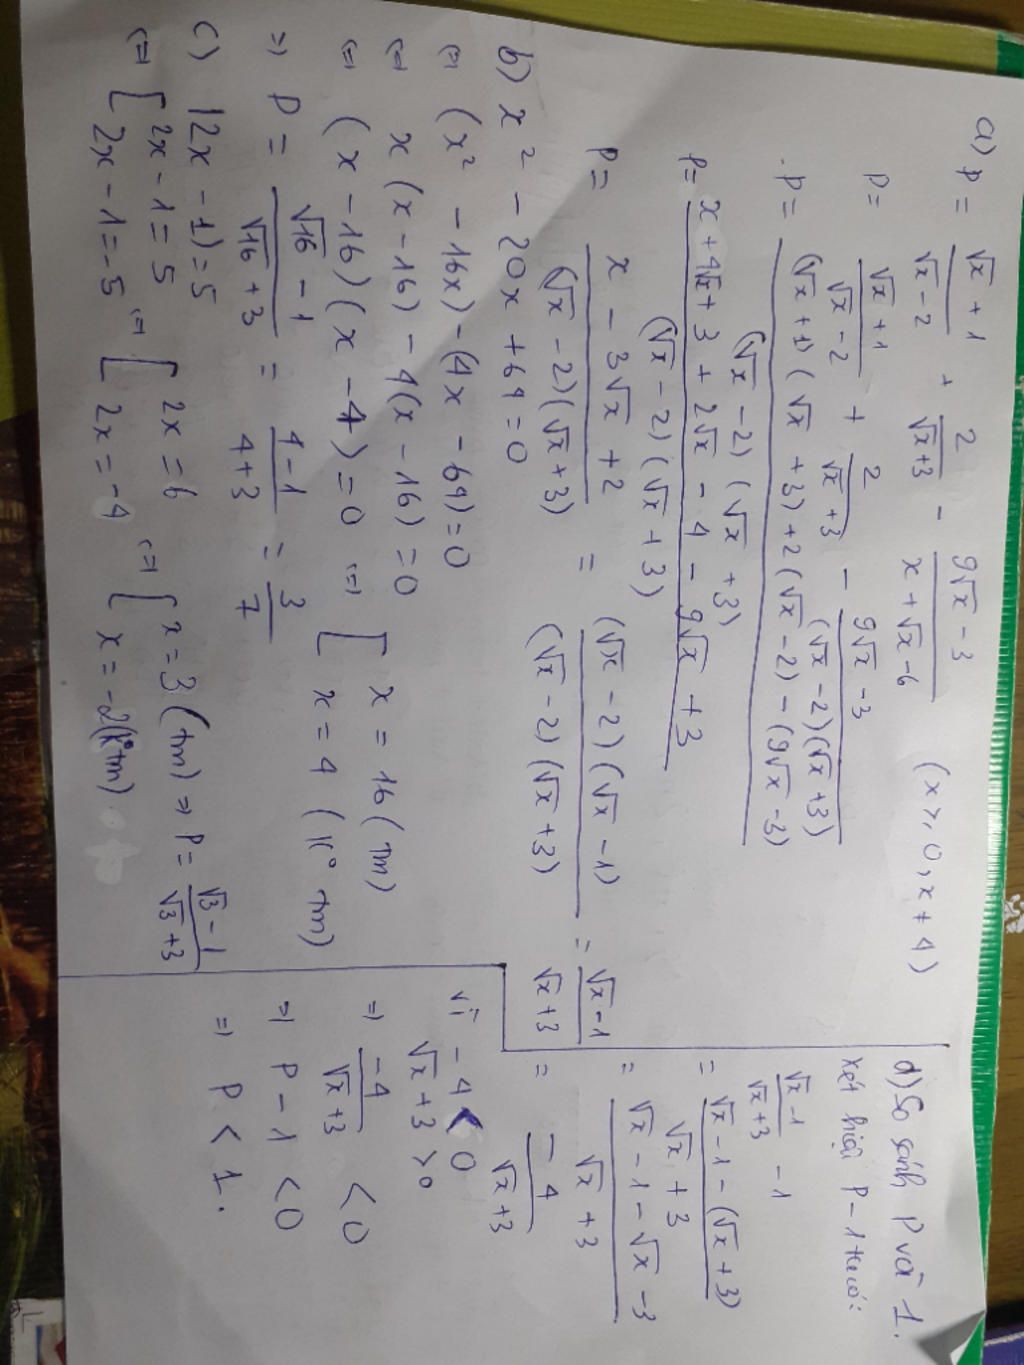 a) P = (√x + 1)/(√x - 2) + 2/(√x + 3) - (9√x - 3)/(x + √x - 6) (x ≥ 0, x ≠ 4)
P = (√x + 1)/(√x - 2) + 2/(√x + 3) - (9√x - 3)/((√x - 2)(√x + 3))
P = ((√x + 1)(√x + 3) + 2(√x - 2) - (9√x - 3))/((√x - 2)(√x + 3))
P = (x + 4√x + 3 + 2√x - 4 - 9√x + 3)/((√x - 2)(√x + 3))
P = (x - 3√x + 2)/((√x - 2)(√x + 3)) = ((√x - 2)(√x - 1))/((√x - 2)(√x + 3)) = (√x - 1)/(√x + 3)
b) x² - 20x + 64 = 0
(=) (x² - 16x) - (4x - 64) = 0
(=) x(x - 16) - 4(x - 16) = 0
(=) (x - 16)(x - 4) = 0 (=) [ x = 16 (tm)
x = 4 (k° tm)
=) P = (√16 - 1)/(√16 + 3) = (4 - 1)/(4 + 3) = 3/7
c) |2x - 1| = 5
(=) [ 2x - 1 = 5 (=) [ 2x = 6 (=) [ x = 3 (tm) =) P = (√3 - 1)/(√3 + 3)
2x - 1 = -5 2x = -4 x = -2 (k° tm)
d) So sánh P và 1.
Xét hiệu P - 1 ta có:
(√x - 1)/(√x + 3) - 1
= (√x - 1 - (√x + 3))/(√x + 3)
= (√x - 1 - √x - 3)/(√x + 3)
= -4/(√x + 3)
Vì -4 < 0
√x + 3 > 0
=) -4/(√x + 3) < 0
=) P - 1 < 0
=) P < 1.